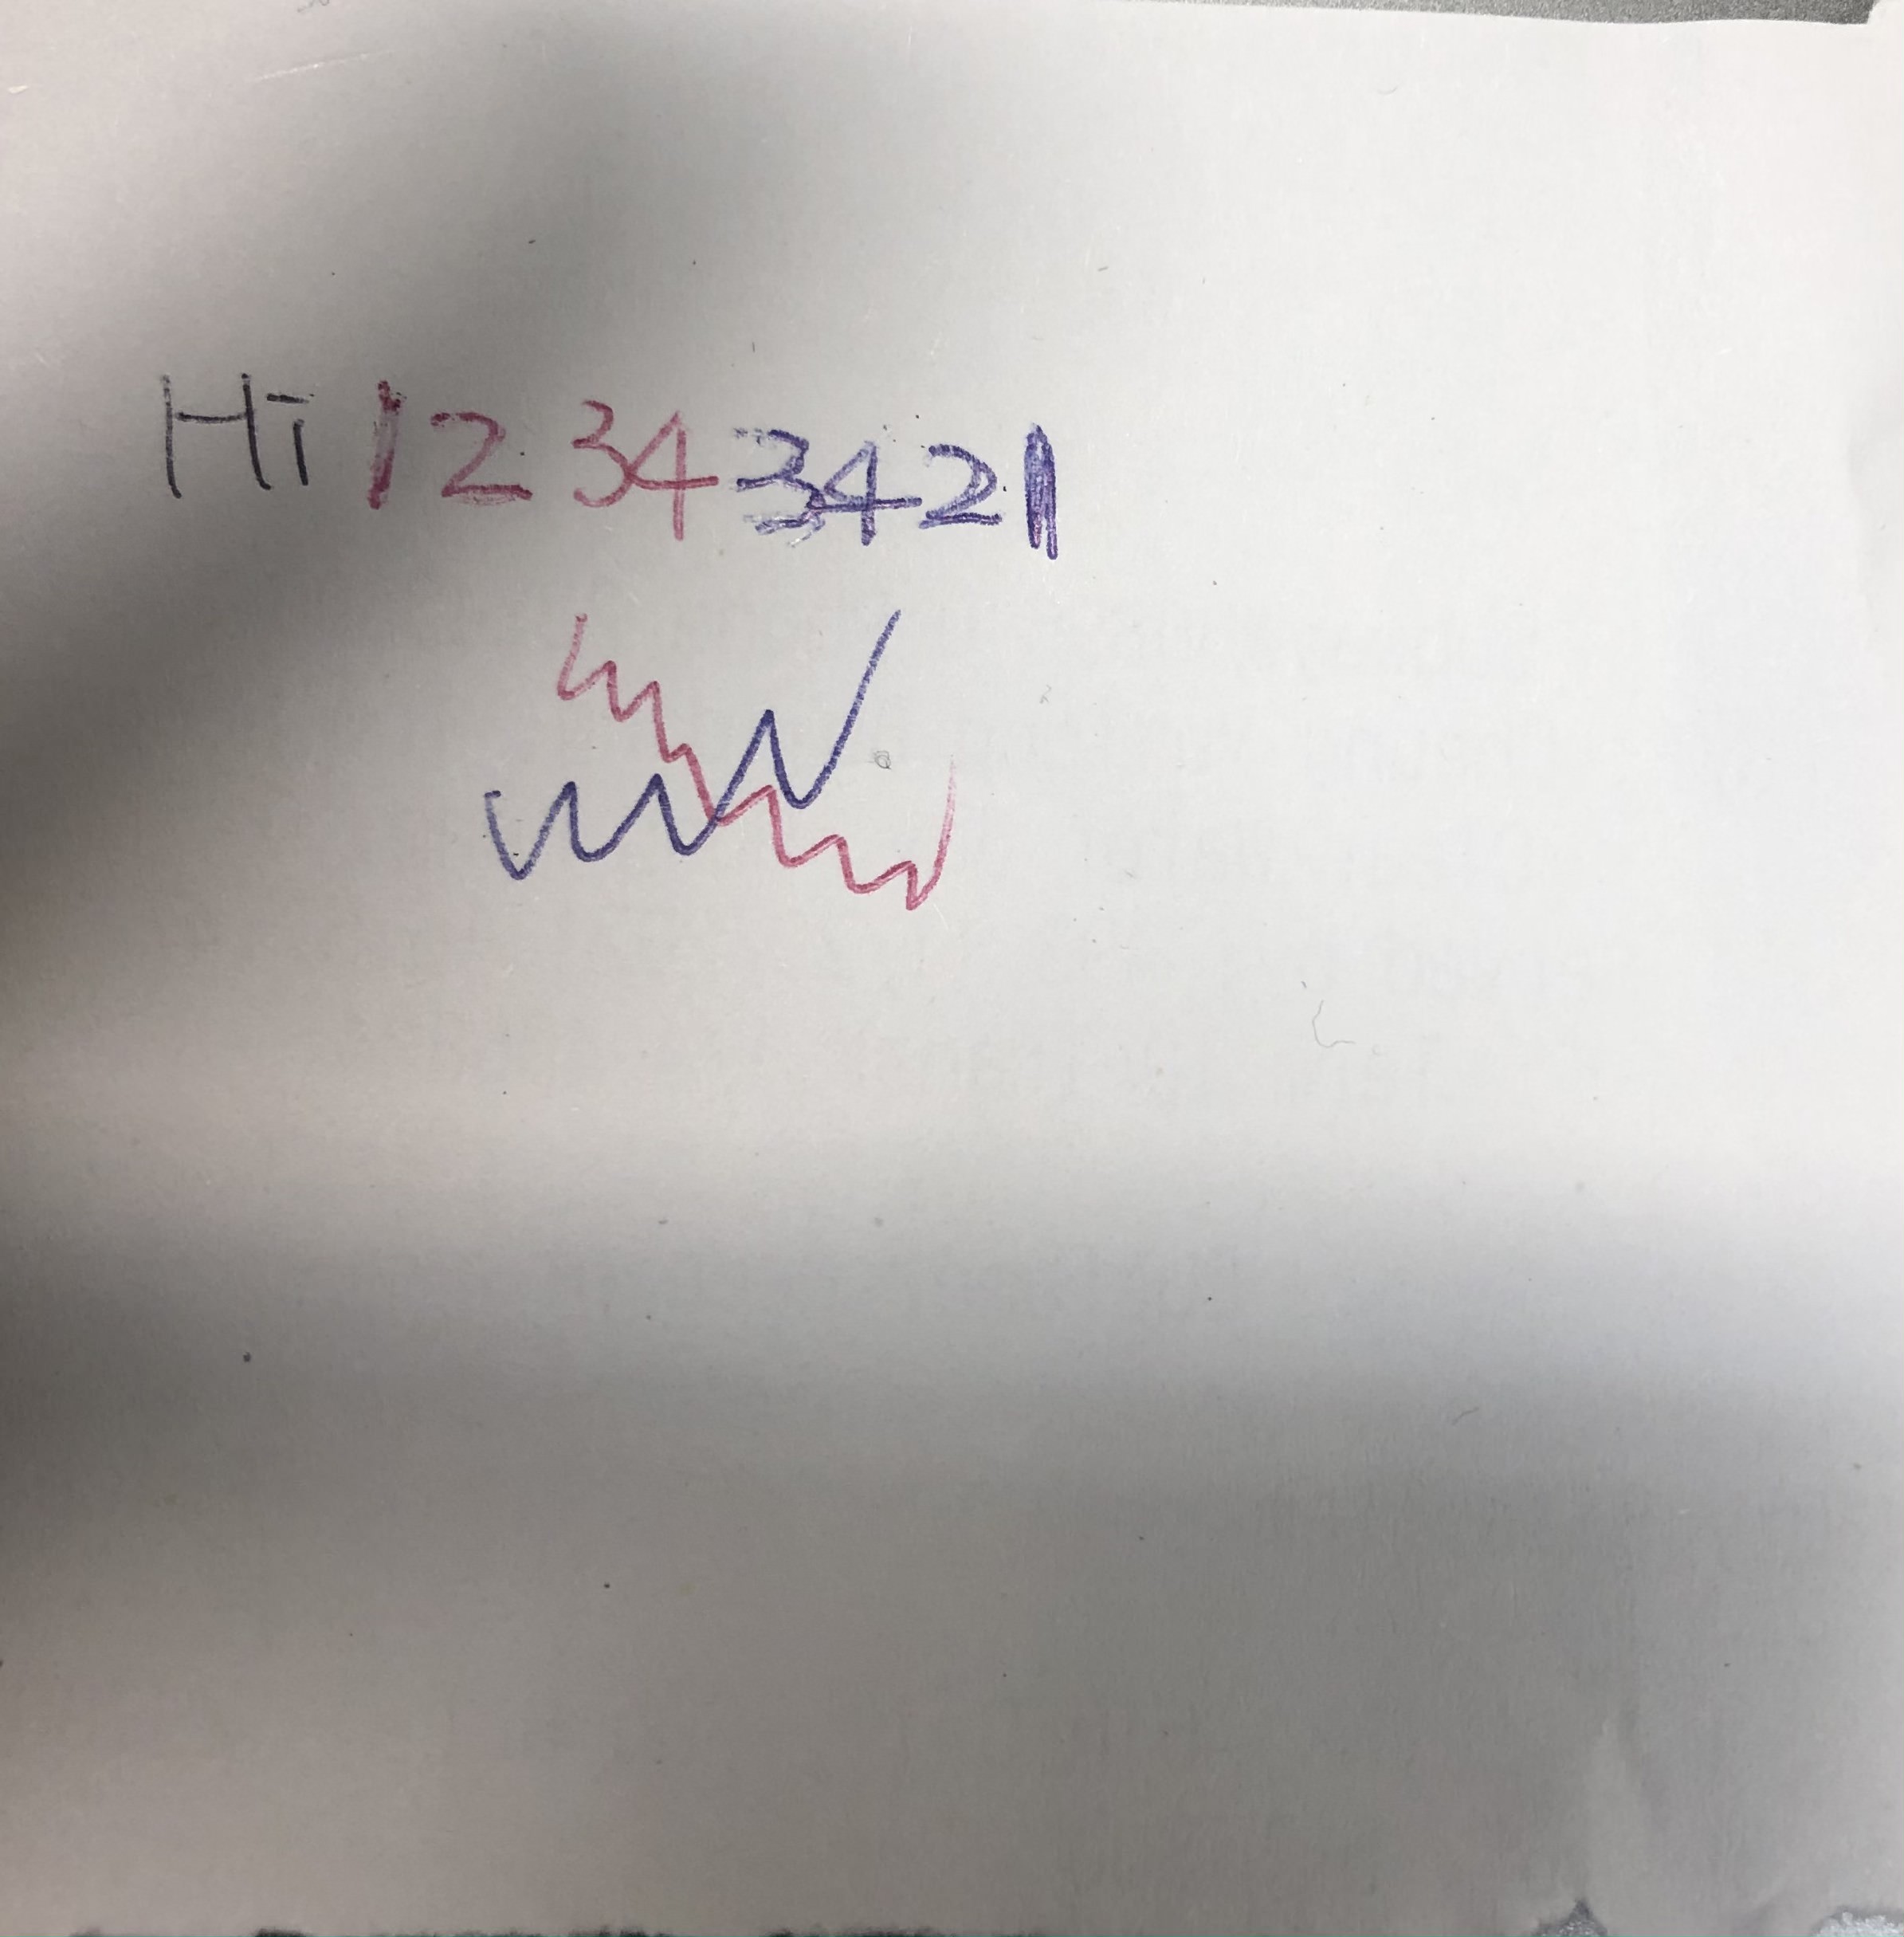 Hi 1 2 3 4 3 4 2 1